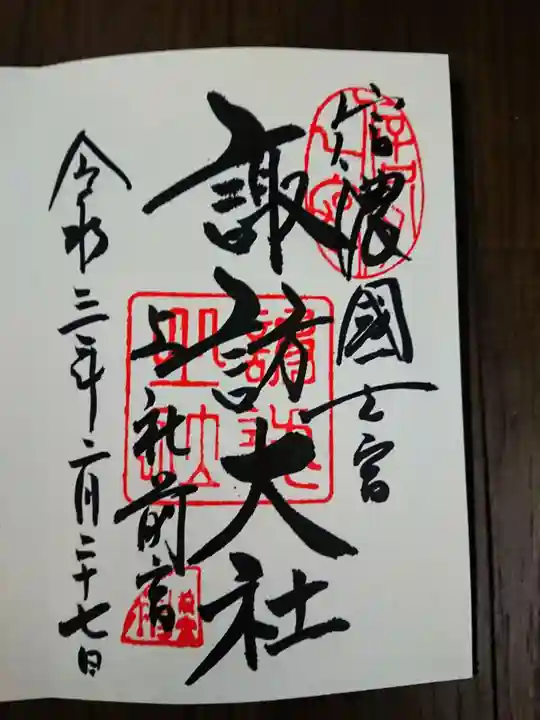 信濃國一宮
諏訪大社
上社前宮
令和三年二月二十七日